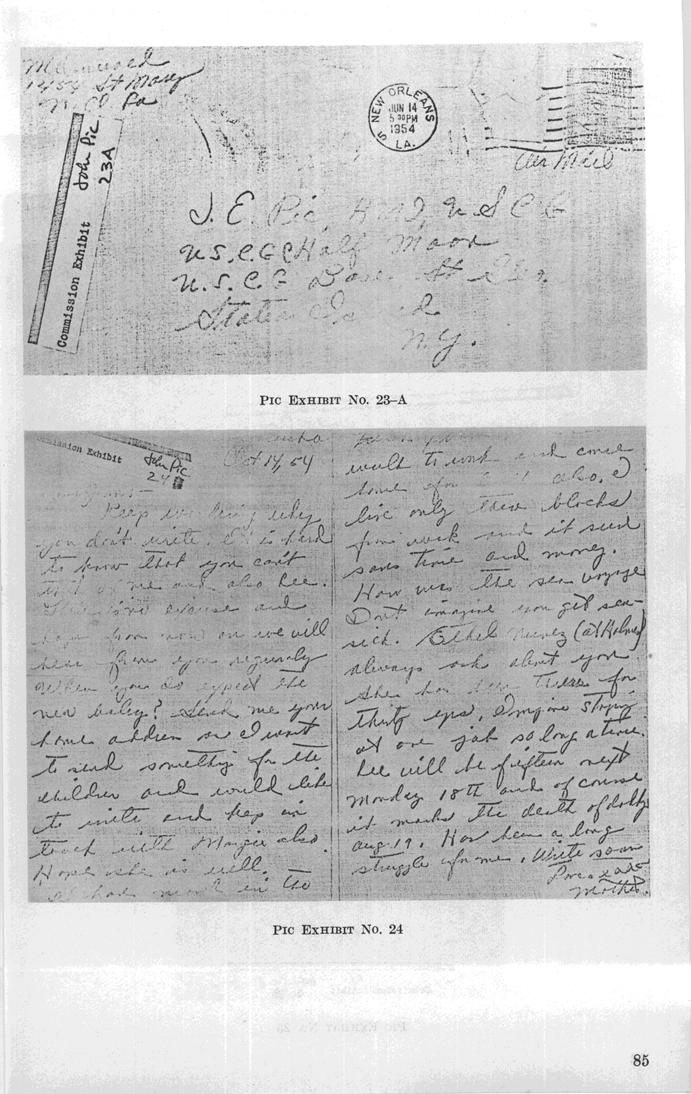 1454 St Mary
Commission Exhibit
John Pic
23A
NEW ORLEANS
JUN 14
5 30 PM
1954
LA.
Air Mail
J. E. Pic, U S C G
U.S.C.G.C Half Moon
U.S.C.G Base St
Staten Island
N.Y.
PIC EXHIBIT NO. 23–A
Commission Exhibit
John Pic
24
Oct 14, 54
Keep why
you don't write. It is hard
to know that you can't
me and also Lee.
excuse and
hope from now on we will
hear from you regularly
When you do expect the
new baby? Send me your
home address as I want
to send something for the
children and would like
to write and keep in
touch with Margie also.
Hope she is well.
in the
walk to work and come
home for also. I
live only three blocks
from work and it sure
saves time and money.
How was the sea voyage
Don't imagine you get sea
sick. Ethel Nunez (at Holmes)
always ask about you
she has been there for
thirty yrs. Imagine staying
at one job so long a time.
Lee will be fifteen next
Monday 18th and of course
it marks the death of daddy
Aug. 19. Has been a long
struggle for me. Write soon
Love
Mother.
PIC EXHIBIT NO. 24
85